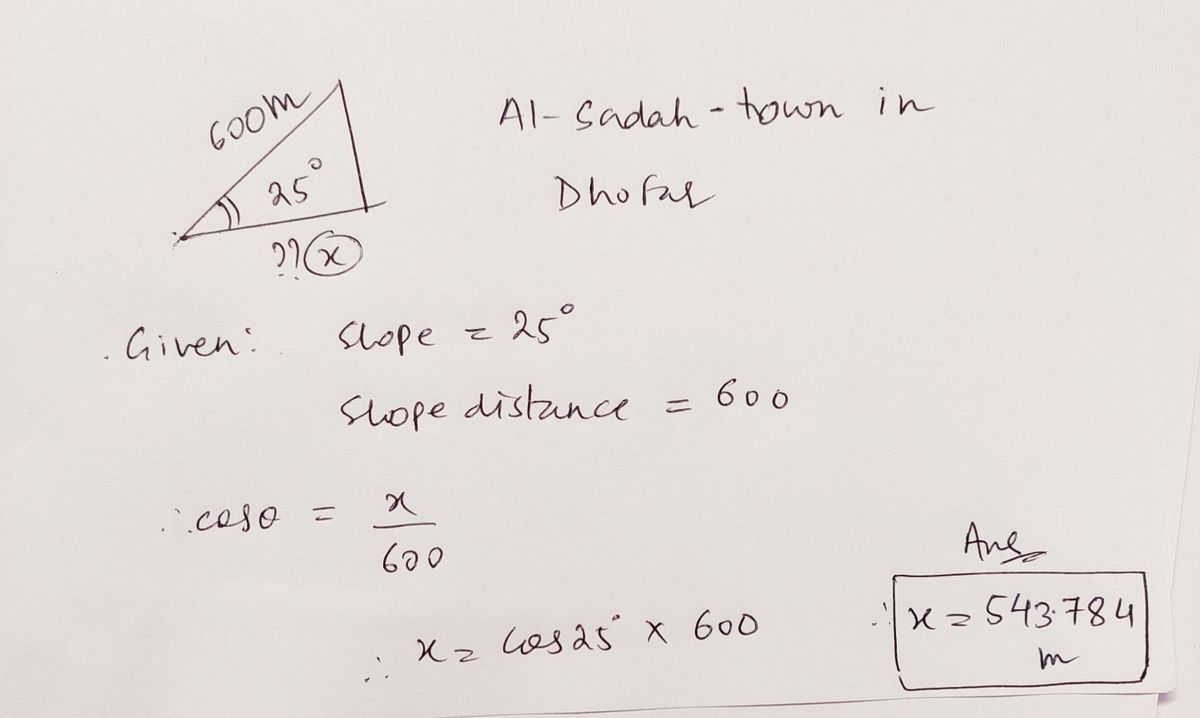 600m
25°
??(x)
Al-Sadah-town in
Dhofar
Given: Slope = 25°
Slope distance = 600
∴ cosθ = x
600
∴ x = Cos 25° x 600
Ans
∴ x = 543.784
m